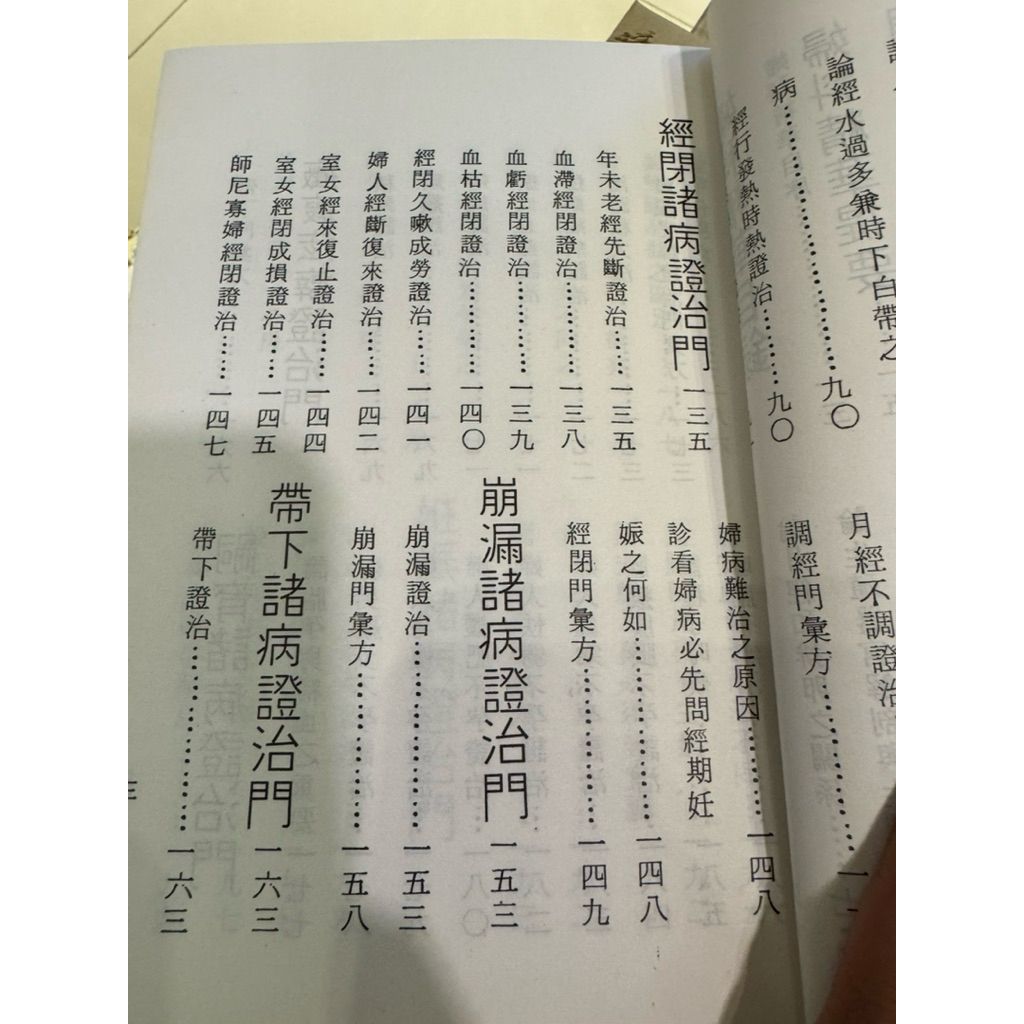 論經水過多兼時下白帶之
病……………九〇
經行發熱時熱證治……九〇
月經不調證治
調經門彙方……………一
經閉諸病證治門 一三五
年未老經先斷證治……一三五
血滯經閉證治…………一三八
血虧經閉證治…………一三九
血枯經閉證治…………一四〇
經閉久嗽成勞證治……一四一
婦人經斷復來證治……一四二
室女經來復止證治……一四四
室女經閉成損證治……一四五
師尼寡婦經閉證治……一四七
婦病難治之原因………一四八
診看婦病必先問經期妊
娠之何如………………一四八
經閉門彙方……………一四九
崩漏諸病證治門 一五三
崩漏證治………………一五三
崩漏門彙方……………一五八
帶下諸病證治門 一六三
帶下證治………………一六三
三